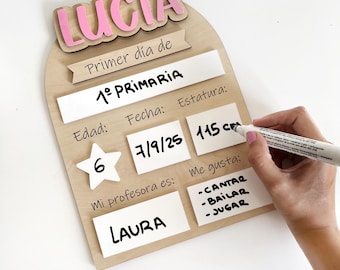 LUCÍA
Primer día de
1º PRIMARIA
Edad: Fecha: Estatura:
6 7/9/25 115 cm
Mi profesora es: Me gusta:
LAURA
- CANTAR
- BAILAR
- JUGAR